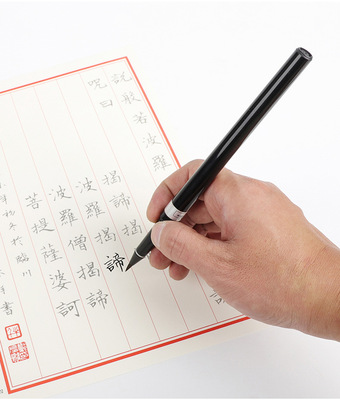 說般若波羅
呪曰
揭諦揭
波羅揭諦
波羅僧揭諦
菩提薩婆訶
於臨川
書